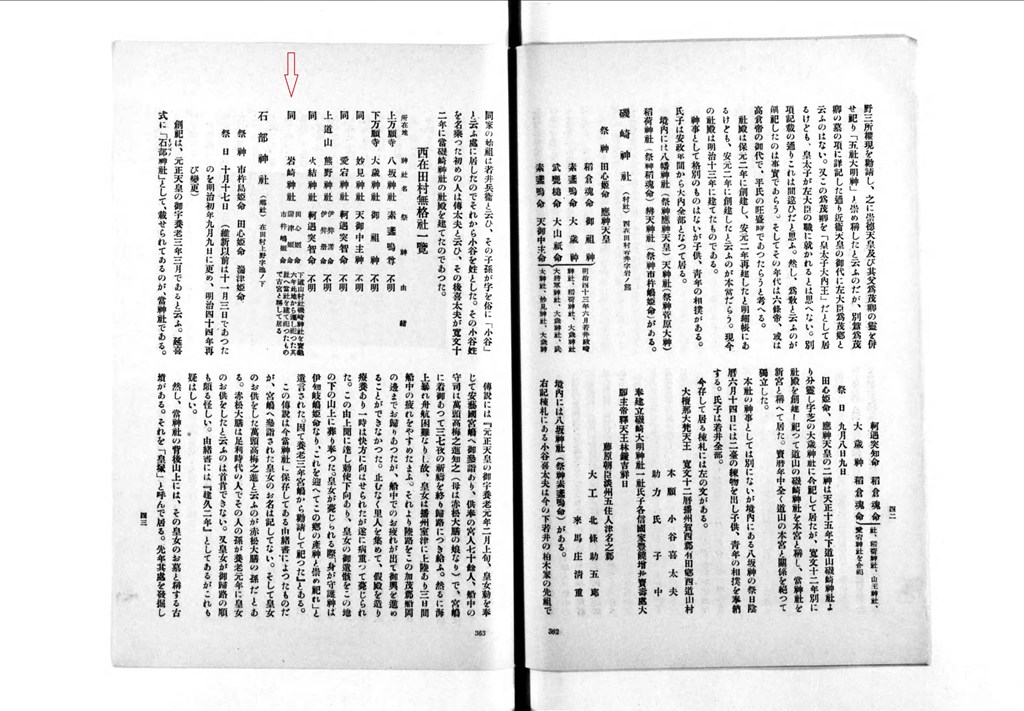 野三所權現を勸請し、之に崇德天皇及其父爲茂卿の靈を併
せ祀り「五社大明神」と崇め稱したと云ふのだが、別篇爲茂
卿の墓の項に詳記した通り近衞天皇の御代に左大臣爲茂卿と
云ふのはない。又この爲茂卿を「皇太子大內王」だとして居
るけども、皇太子が左大臣の職に就かれるとは思へない。別
項記載の通りこれは間違ひだと思ふ。然し、爲敎と云ふのが
創祀したのは事實であらう。そしてその年代は六條帝、或は
高倉帝の御代で、平氏の旺盛時であつたらうと考へる。
社殿は保元二年に創建し、安元二年再建したと明細帳にあ
るけども、安元二年に創建したと云ふのが本當だらう。現今
の社殿は明治十三年に建てたものである。
神事として格別のものはないが子供、靑年の相撲がある。
氏子は安政年間から大內全部となつて居る。
境內には八幡神社(祭神應神天皇)天神社(祭神菅原大神)
稻荷神社(祭神稻倉魂命)辨天神社(祭神市杵島姬命)がある。
磯崎神社 (村社)西在田村若井字岩ノ鼻
祭神 田心姬命 應神天皇
稻倉魂命 御祖神
素盞嗚命 大歲神
武甕槌命 大山祇命
素盞嗚命 天御中主命
明治四十三年六月若井政崎
神社、稻荷神社、大歲神社
大將軍神社、大歲神社、武
大神社、妙見神社、大歲神
柯遇突知命 稻倉魂命
大歲神 稻倉魂命
社、稻荷神社、山王神社、
愛宕神社を合祀
祭日 九月八日九日
田心姬命、應神天皇の二神は天正十五年下道山磯崎神社よ
り分靈し字芝の大歲神社に合祀して居たが、寬文十二年別に
社殿を創建し祀つて道山の磯崎神社を本宮と稱し、當神社を
新宮と稱へて居た。寶曆年中全く道山の本宮と關係を絕つて
獨立した。
本社の神事としては別にないが境內にある八坂神の祭日陰
曆六月十四日には二臺の練物を出し子供、靑年の相撲を奉納
する。氏子は若井全部。
今存して居る棟札には左の文がある。
本願 小谷喜太夫
助力 氏子中
大檀那大梵天王 寬文十二曆播州賀西郡有田鄕四道山村
奉建立磯崎大明神一社氏子各信國家豐饒增尹賣壽處大
願主帝釋天王林鐘吉祥日
藤原朝臣淡州五住人津名之郡
大工 北條助五郞
來馬庄淸重
境內には八坂神社(祭神素盞嗚命)がある。
右記棟札にある小谷喜太夫は今の下若井の柏木家の先祖で
四二
362
同家の始祖は若井兵衞と云ひ、その子孫が字を俗に「小谷」
と云ふ處に居したのでそれから小谷を姓とした。その小谷姓
を名乘つた初めの人は傳太夫と云ひ、その後喜太夫が寬文十
二年に當磯崎神社の社殿を建てたのであつた。
西在田村無格社一覽
所在地 神社名 祭神 由緖
上万願寺 八坂神社 素盞嗚尊 不明
下万願寺 大歲神社 御祖神 不明
同 妙見神社 天御中主神 不明
同 愛宕神社 柯遇突智命 不明
上道山 熊野神社 伊弉諾命 伊弉冊命 不明
同 火結神社 柯遇突智命 不明
同 岩崎神社 田心姬命 湍津姬命 市杵嶋姬命
下道山村社磯崎神社を寶曆
六年此地から遷し祀つた其
趾に當社を建て祀つたもの
で古宮と稱して居る
石部神社 (鄕社) 在田村上野字池ノ下
祭神 市杵島姬命 田心姬命 湍津姬命
祭日 十月十七日 (維新以前は十一月三日であつた
のを明治初年九月九日に更め、明治四十四年再
び變更)
創祀は、元正天皇の御宇養老三年三月であると云ふ。延喜
式に「石部神社」として、載せられてあるのが、當神社である。
傳說には『元正天皇の御宇養老元年二月上旬、皇女勅を奉
じて安藝國宮嶋へ御參詣あり、供奉の宮人七十餘人、船中の
守司は萬頭高梅之進知之(母は赤松大膳の娘なり)で、宮嶋
に着御あつて三七夜の祈禱を終り歸路につき給ふ。然るに海
上暴れ舟航困難なりし故、皇女は播州室津に上陸あり三日間
船中の疲れをやすめたまふ、それより陸路をこの加茂鄕船岡
の邊までお歸りあつたが、船中でのお疲れが出て御輿を進め
ることができなかつた。止むなく里人を集めて、假殿を造り
療養あり一時は快方に向はせられたが遂に病重つて薨じられ
た。この山上聞に達し勅使下向あり、皇女の御遺骸をこの地
の下の山上に葬り奉つた。皇女が薨じられる際「身が守護神は
伊知岐嶋姬命なり、これを迎へてこの鄕の產神と崇め祀れ」と
遺言された、因て養老三年宮嶋から勸請して祀つた』とある。
この傳說は今當神社に保存してある由緖書によつたものだ
が、宮嶋へ參詣された皇女のお名は記してない。そして皇女
のお供をした萬頭高梅之進と云ふのが赤松大膳の孫だとあ
る。赤松大膳は足利時代の人でその人の孫が養老元年に皇女
のお供をしたと云ふのは首肯できない。又皇女が御歸路の順
も頗る怪しい。由緖書には『建久二年』としてあるがこれも
疑はしい。
然し、當神社の背後山上には、その皇女のお墓と稱する古
墳がある。それを「皇塚」と呼んで居る。先年其處を發掘し
四三
363